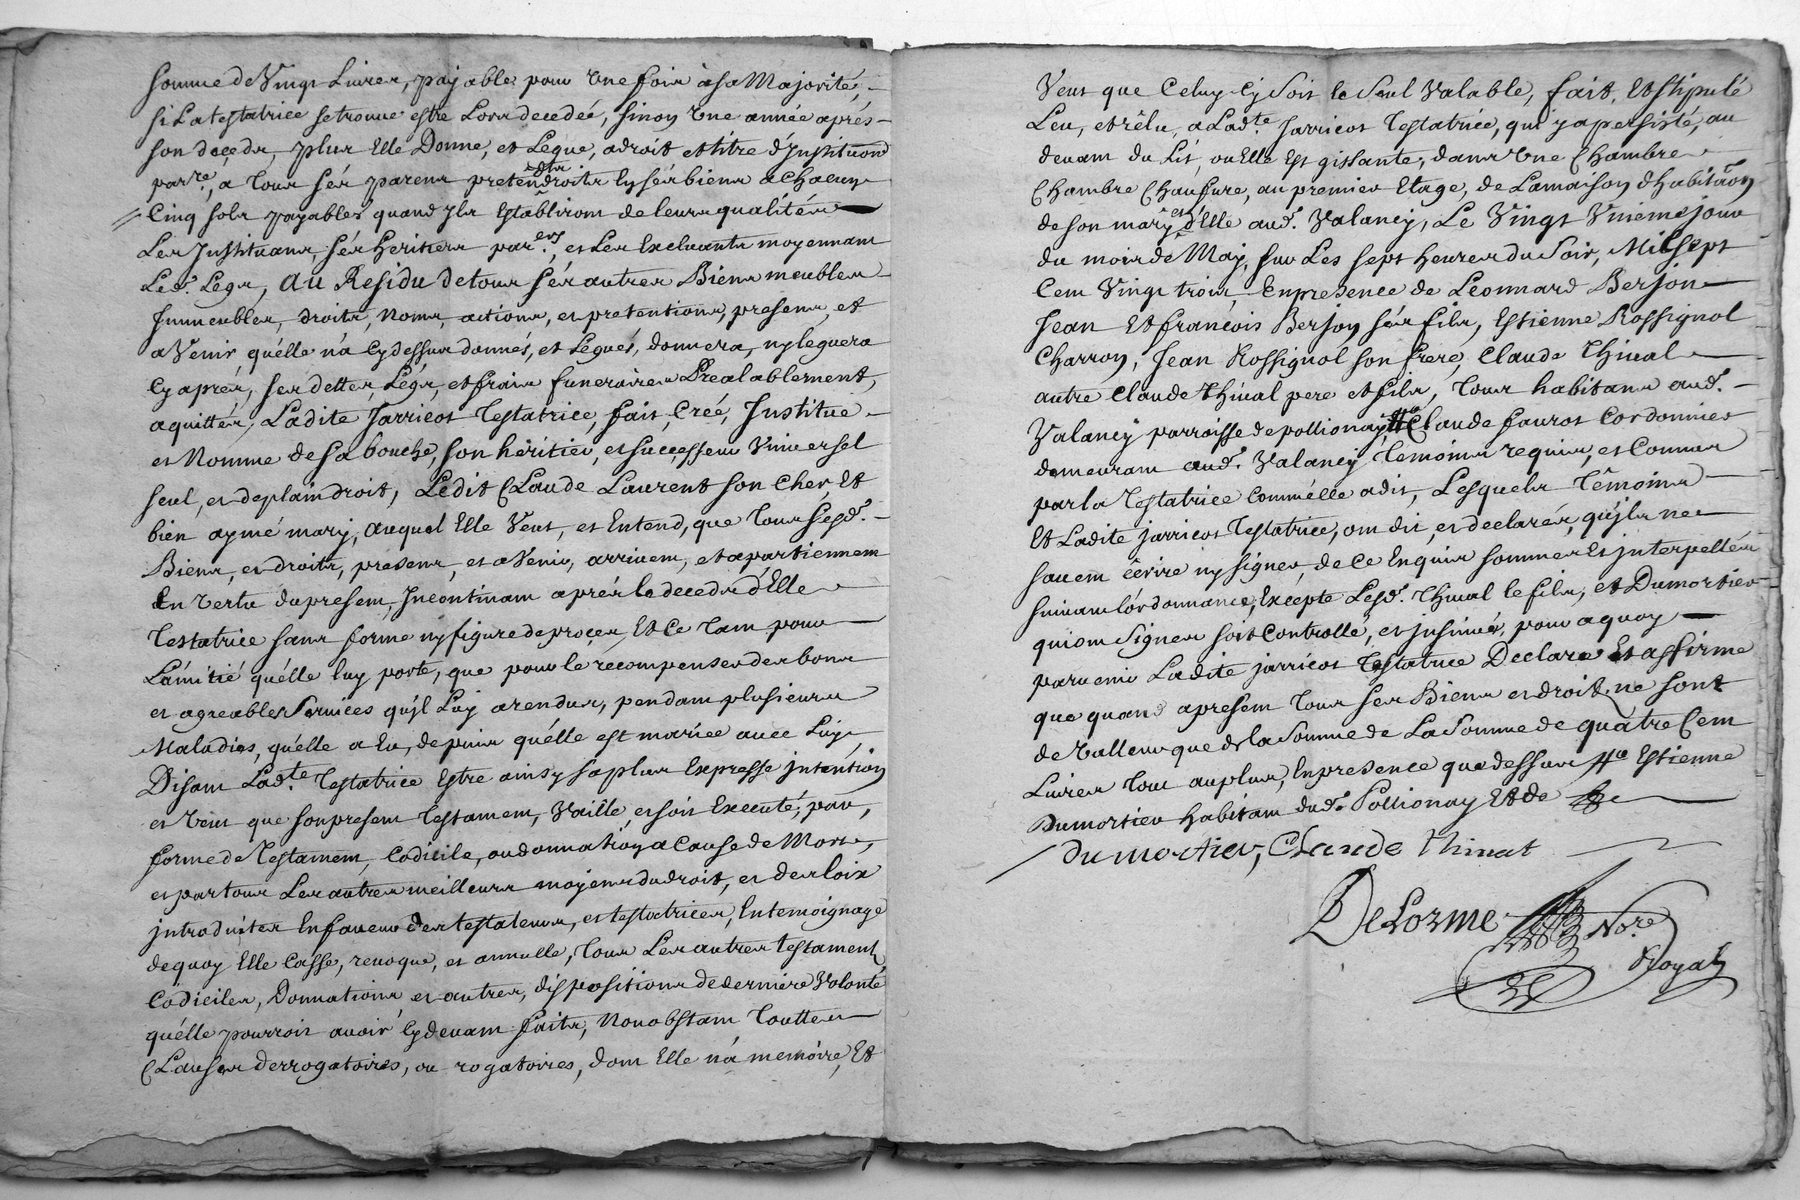 somme de Vingt Livres, payable pour Une fois à sa Majorité,
si La testatrice se trouve estre Lors decedeé, sinon Une année aprés
son decéds, plus Elle Donne, et Legue, a droit et titre d'Institution
par.re, a Tous sés parens pretendts droits En sés biens a chacun
Cinq sols payables quand Ils Establiront de leurs qualités
Les Instituans, sés Heritiers par.ers, et Les Excluants moyennant
Led. Legs, Au Residu de tous sés autres Biens meubles
Immeubles, droits, Noms, actions, et pretentions, presens, et
a Venir qu'élle n'a Cy dessus donnés, et Legués, donnera, ny leguera
Cy aprés, ses dettes, Legs, et frais funeraires Prealablement,
aquittés, Ladite Jarricot Testatrice, fait, Créé, Institue
et Nomme de sa bouche, son héritier, et successeur Universel
seul, et de plain droit, Ledit Claude Laurent son Cher, Et
bien aymé mary, Auquel Elle Veut, et Entend, que Tous sesd.
Biens, et droits, presens, et a Venir, arrivent, et apartiennent
En Vertu du present, Incontinant aprés le deceds d'Elle
Testatrice sans forme ny figure de procés, Et Ce Tant pour
L'amitié qu'élle luy porte, que pour le récompenser des bons
et agreables Services qu'jl Luy a rendus, pendant plusieurs
Maladies, qu'élle a Eu, depuis qu'élle est mariée avec Luy
Disant Lad.te Testatrice Estre ainsy sa plus Expresse jntention
et Veut que son present Testament, Vaille et soit Executé, par,
forme de Testament, Codicile, ou donnation a Cause de Mort,
et par tous Les autres meilleurs moyens du droit, et des loix
jntroduites En faveur des testateurs, et testatrices, En temoignage
de quoy Elle Casse, revoque, et annulle, Tous Les autres testament
Codiciles, Donnations et autres, dispositions de derniere Volonté
qu'élle pourroit avoir Cy devant faits, Nonobstant Touttes
Clauses derrogatoires, ou rogatoires, dont Elle n'á memoire, Et
Veut que Celuy Cy Soit le Seul Valable, fait, Et stipulé
Leu, et rêlu, a Lad.te Jarricot Testatrice, qui y a persisté, au
devant du Lit, ou Elle Est gissante, dans Une Chambre
Chambre Chaufure, au premier Etage, de La maison d'habitaôn
de son mary et d'Elle aud. Valancy, Le Vingt Uniemé jour
du mois de May, sur Les sept heures du Soir, Mil sept
Cent Vingt trois, En presence de Léonnard Berjon
Jean Et françois Berjon sés fils, Estienne Rossignol
Charron, Jean Rossignol son frere, Claude Thival
autre Claude thival pere et fils, Tous habitans aud.
Valancy parroisse de pollionay, Claude faurot Cordonnier
demeurant aud. Valancy Temoins requis, et Connus
par la Testatrice Comm'élle a dit, Lesquels Têmoins
Et Ladite jarricot Testatrice, ont dit, et declarér, qu'jls ne
savent êcrire ny signer, de Ce Enquis sommes Et jnterpellés
suivant l'órdonnance, Excepte Lesd. Thival le fils, et Dumortier
qui ont Signes soit Controllé, et jnsinué, pour a quoy
parvenir Ladite jarricot Testatrice Declare Et affirme
que quand a present Tous ses Biens et droit ne sont
de Valleur que de la Somme de La Somme de quatre Cent
Livres Tout au plus, En presence que dessus Estienne
Dumortier habitant dud. Pollionay Et de
dumortier, Claude Thivat
DeLorme No.re
Royal